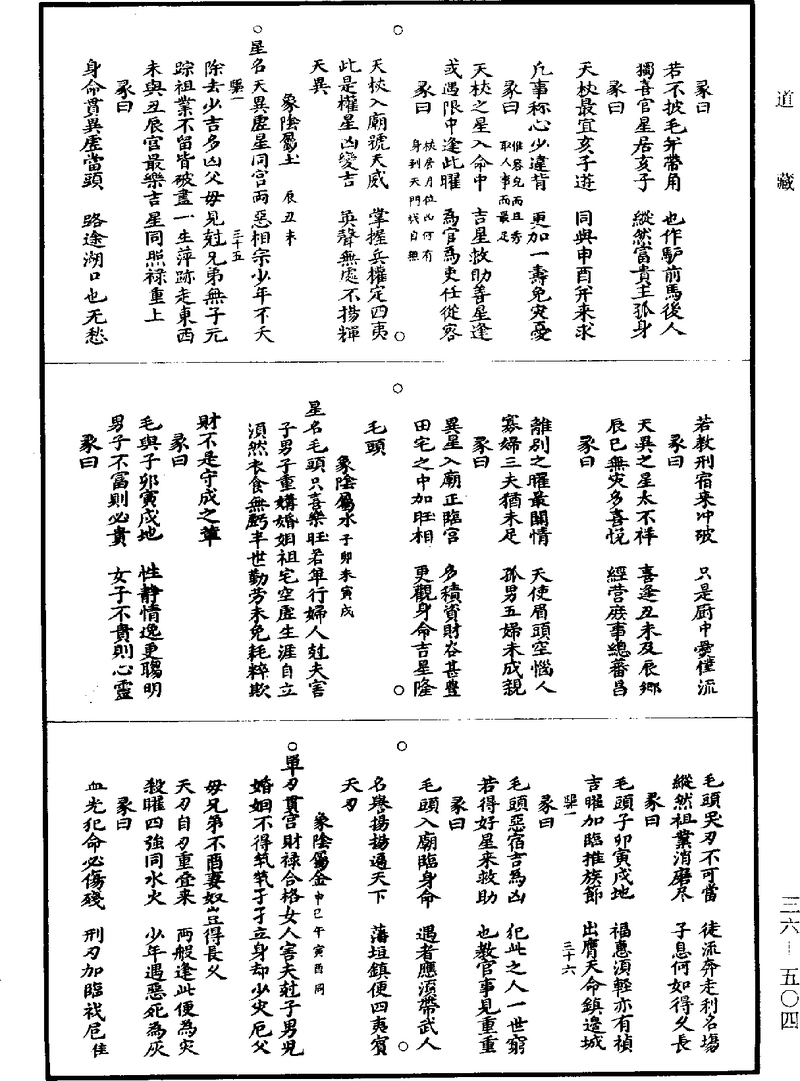 道藏
彖曰
若不披毛并帶角　也作馿前馬後人
獨喜官星居亥子　縱然富貴主孤身
彖曰
天杖最宜亥子遊　同與申酉并來求
凡事称心少違背　更加一壽免灾憂
彖曰
惟容皃而且秀
取人事而最足
天杖之星入命中　吉星救助善星逢
或遇限中逢此曜　爲官爲吏任從容
彖曰
身到天門我自無
天杖入廟號天威　掌握兵權定四夷
此是權星凶變吉　英聲無處不揚輝
天異
象陰屬土　辰丑未
○星名天異虛星同宮兩惡相宗少年不夭
三十五
除去少吉多凶父母見尅兄弟無子元
踪祖業不留皆破盡一生萍跡走東西
未與丑辰官最樂吉星同照禄重上
彖曰
身命貫異虛當頭　路途湖口也无愁
若教刑宿來冲破　只是廚中㸑僕流
彖曰
天異之星太不祥　喜逢丑未及辰鄉
辰巳無灾多喜悅　經营庶事總蕃昌
彖曰
離别之曜最關情　天使眉頭空惱人
寡婦三夫猶未足　孤男五婦未成親
彖曰
異星入廟正臨宮　多積資財谷甚豊
田宅之中加旺相　更觀身命吉星隆
毛頭
象陰屬水　子卯未寅戌
星名毛頭只喜樂旺若單行婦人尅夫害
子男子重媾婚姻祖宅空虛生涯自立
湏然衣食無虧半世勤劳未免耗粹欺
財不是守成之輩
彖曰
毛與子卯寅戌地　性静情逸更聦明
男子不富則必貴　女子不貴則心靈
彖曰
毛頭哭刃不可當　徒流奔走利名塲
縱然祖業消磨尽　子息何如得久長
彖曰
毛頭子卯寅戌地　福惠須輕亦有禎
吉曜加臨推旄節　出膺天命鎮邊城
三十六
彖曰
毛頭惡宿吉爲凶　犯此之人一世窮
若得好星來救助　也教官事見重重
彖曰
毛頭入廟臨身命　遇者應須帶武人
名譽揚揚通天下　藩垣鎮便四夷賓
天刃
象陰屬金　申巳午寅酉同
○單刃貫宮財禄合格女人害夫尅子男兒
婚姻不得㷀㷀孑孑立身却少灾厄父
母兄弟不酉妻奴豈得長久
天刃自刃重叠来　两般逢此便為灾
殺曜四強同水火　少年遇惡死為灰
彖曰
血光犯命必傷殘　刑刃加臨
三六—五〇四